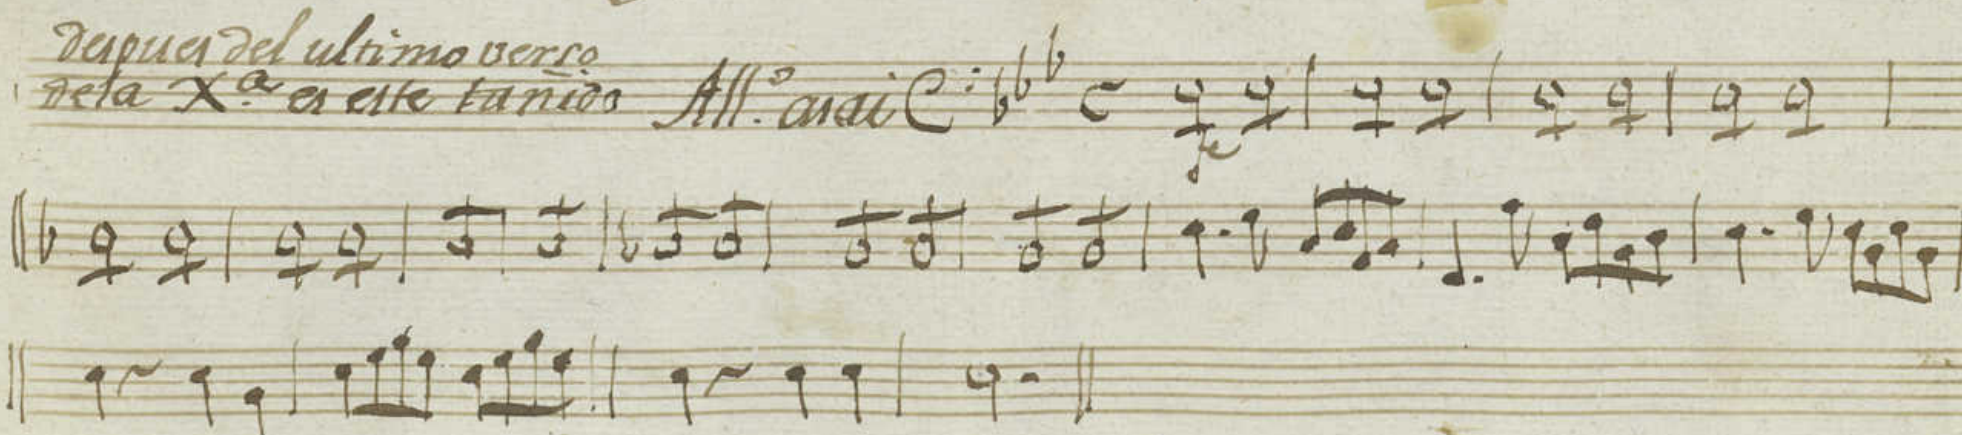 despues del ultimo verso
dela X.ª es este tañido All.º asai
fe